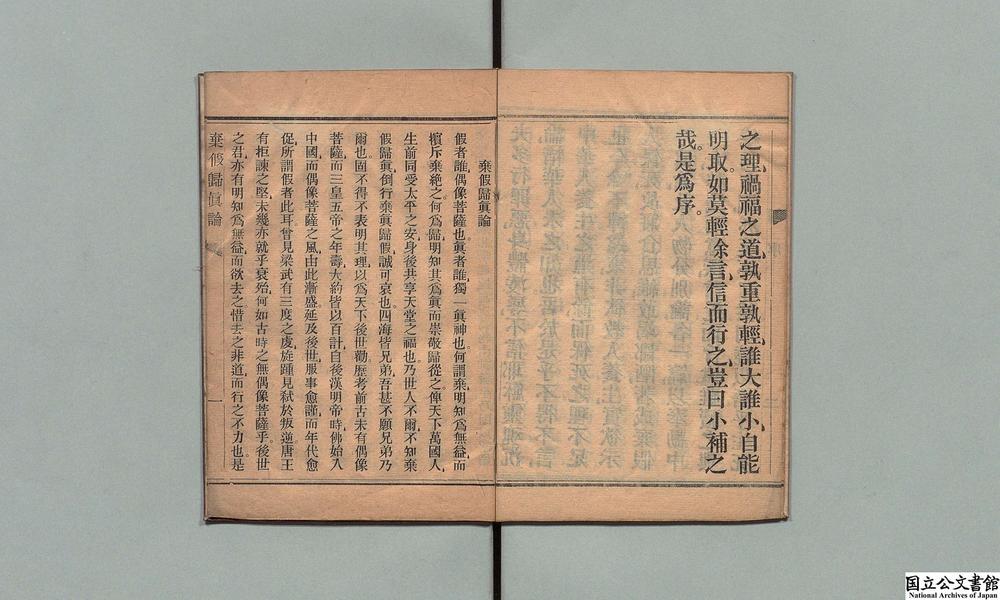 之理,禍福之道,孰重孰輕,誰大誰小,自能
明取,如莫輕餘言,信而行之,豈曰小補之
哉。是爲序。
棄假歸眞論
假者誰,偶像菩薩也。眞者誰,獨一眞神也。何謂棄,明知爲無益,而
擯斥棄絶之。何爲歸,明知其爲眞,而崇敬歸從之。俾天下萬國人,
生前同受太平之安,身後共享天堂之福也。乃世人不爾,不知棄
假歸眞,倒行棄眞歸假,誠可哀也。四海皆兄弟,吾甚不願兄弟乃
爾也。固不得不表明其理,以爲天下後世勸。歷考前古未有偶像
菩薩,而三皇五帝之年壽,大約皆以百計,自後漢明帝時,佛始入
中國,而偶像菩薩之風,由此漸盛,延及後世,服事愈謹,而年代愈
促,所謂假者此耳。曾見梁武有三度之處,旋踵見弑於叛逆,唐王
有拒諫之堅,未幾亦就乎衰殆,何如古時之無偶像菩薩乎。後世
之君,亦有明知爲無益,而欲去之,惜去之非道,而行之不力也。是
棄假歸眞論
一
国立公文書館
National Archives of Japan